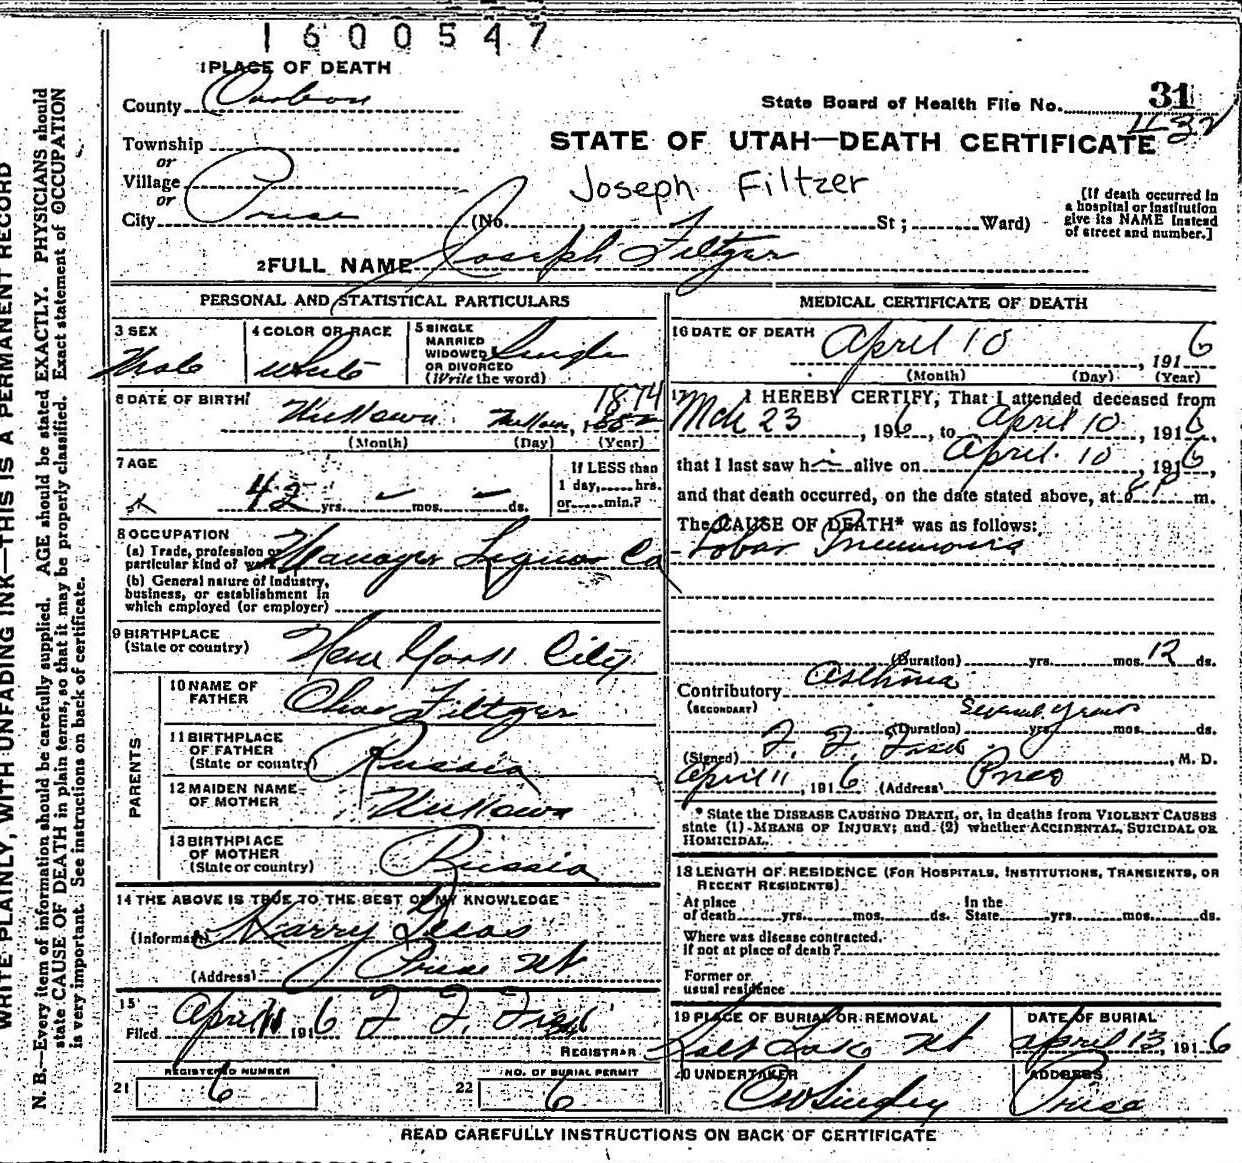 1600547
1 PLACE OF DEATH
County Carbon
State Board of Health File No. 31
432
Township
or
Village
or
City Price
STATE OF UTAH—DEATH CERTIFICATE
Joseph Filtzer
(No. St ; Ward)
[If death occurred in
a hospital or institution
give its NAME instead
of street and number.]
2 FULL NAME Joseph Filtzer
PERSONAL AND STATISTICAL PARTICULARS
3 SEX
Male
4 COLOR OR RACE
White
5 SINGLE
MARRIED
WIDOWED
OR DIVORCED
(Write the word)
Single
6 DATE OF BIRTH
Unknown 1874
(Month) (Day) (Year)
7 AGE
42 yrs. mos. ds.
If LESS than
1 day, hrs.
or min.?
8 OCCUPATION
(a) Trade, profession or
particular kind of work Manager Liquor Co
(b) General nature of industry,
business, or establishment in
which employed (or employer)
9 BIRTHPLACE
(State or country)
New York City
PARENTS
10 NAME OF
FATHER
Chas Filtzer
11 BIRTHPLACE
OF FATHER
(State or country)
Russia
12 MAIDEN NAME
OF MOTHER
Unknown
13 BIRTHPLACE
OF MOTHER
(State or country)
Russia
14 THE ABOVE IS TRUE TO THE BEST OF MY KNOWLEDGE
(Informant) Harry
(Address) Price Ut
15
Filed April 11 1916 F. F. Fisk
REGISTRAR
REGISTERED NUMBER
21 6
NO. OF BURIAL PERMIT
22 6
MEDICAL CERTIFICATE OF DEATH
16 DATE OF DEATH
April 10, 1916
(Month) (Day) (Year)
17 I HEREBY CERTIFY, That I attended deceased from
Mch 23, 1916, to April 10, 1916,
that I last saw him alive on April 10, 1916,
and that death occurred, on the date stated above, at 8 P m.
The CAUSE OF DEATH* was as follows:
Lobar Pneumonia
(Duration) yrs. mos. 12 ds.
Contributory Asthma
(SECONDARY)
Several years
(Duration) yrs. mos. ds.
(Signed) F. F. Fisk, M. D.
April 11, 1916 (Address) Price
* State the DISEASE CAUSING DEATH, or, in deaths from VIOLENT CAUSES
state (1) MEANS OF INJURY; and (2) whether ACCIDENTAL, SUICIDAL OR
HOMICIDAL.
18 LENGTH OF RESIDENCE (FOR HOSPITALS, INSTITUTIONS, TRANSIENTS, OR
RECENT RESIDENTS)
At place
of death yrs. mos. ds.
In the
State yrs. mos. ds.
Where was disease contracted,
if not at place of death?
Former or
usual residence
19 PLACE OF BURIAL OR REMOVAL
Salt Lake Ut
DATE OF BURIAL
April 13, 1916
20 UNDERTAKER
ADDRESS
Price
READ CAREFULLY INSTRUCTIONS ON BACK OF CERTIFICATE
WRITE PLAINLY, WITH UNFADING INK—THIS IS A PERMANENT RECORD
N. B.—Every item of information should be carefully supplied. AGE should be stated EXACTLY. PHYSICIANS should
state CAUSE OF DEATH in plain terms, so that it may be properly classified. Exact statement of OCCUPATION
is very important. See instructions on back of certificate.